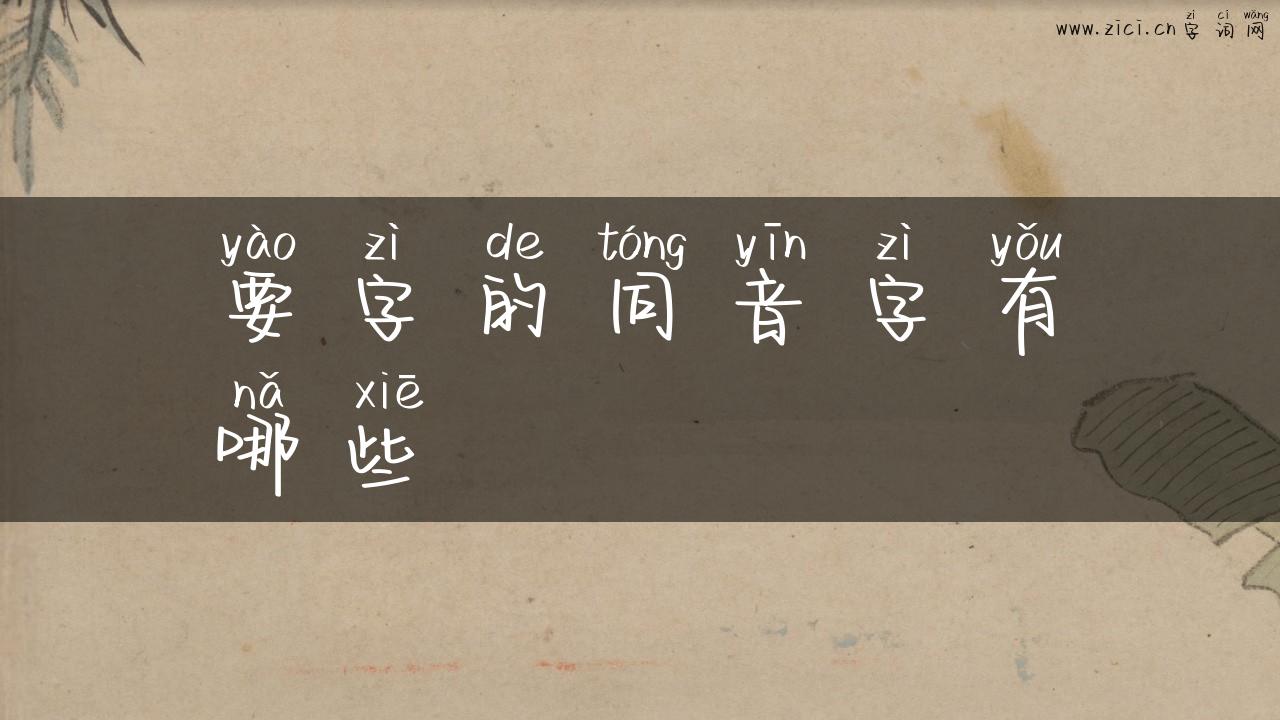 zì cí wǎng
www.zici.cn 字词网
yào zì de tóng yīn zì yǒu
要字的同音字有
nǎ xiē
哪些